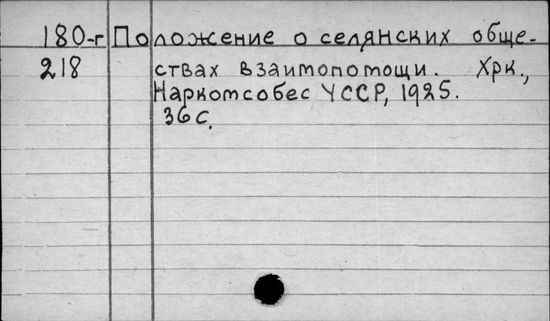 180-г Положение о селянских обще-
218 ствах взаимопомощи. Хрк.,
Наркомсобес УССР, 1925.
36 с.